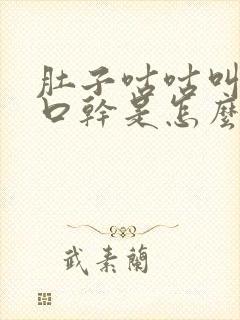 肚子咕咕叫
口幹是怎麼
武素蘭